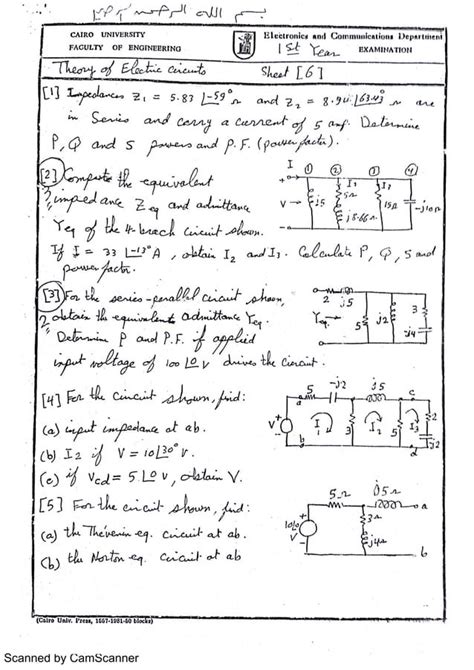 بسم الله الرحمن الرحيم
CAIRO UNIVERSITY
FACULTY OF ENGINEERING
Electronics and Communications Department
1st Year EXAMINATION
Theory of Electric circuits Sheet [6]
[1] Impedances Z₁ = 5.83 ∠-59° Ω and Z₂ = 8.94 ∠63.43° Ω are
in Series and carry a current of 5 amp. Determine
P, Q and S powers and P.F. (power factor).
[2] Compute the equivalent
impedance Zeq and admittance
Yeq of the 4-branch circuit shown.
If I = 33 ∠-13° A, obtain I₂ and I₃. Calculate P, Q, S and
power factor.
I ① ② ③ ④
I₂ I₃
V j5 5Ω 15Ω -j10Ω
j8.66Ω
[3] For the series-parallel circuit shown,
obtain the equivalent admittance Yeq.
Determine P and P.F. if applied
input voltage of 100 ∠0 V drives the circuit.
2 j5
Yeq 5 j2 3
-j4
[4] For the circuit shown, find:
(a) input impedance at ab.
(b) I₂ if V = 10∠30° V.
(c) if Vcd = 5∠0 V, obtain V.
5 -j2 j5 c
a
V I₁ 3 I₂ 5 I₃ 2
b d -j2
[5] For the circuit shown, find:
(a) the Thévenin eq. circuit at ab.
(b) the Norton eq. circuit at ab
5Ω j5Ω a
10∠0 V 3Ω
j4Ω
b
(Cairo Univ. Press, 1557-1981-50 blocks)
Scanned by CamScanner